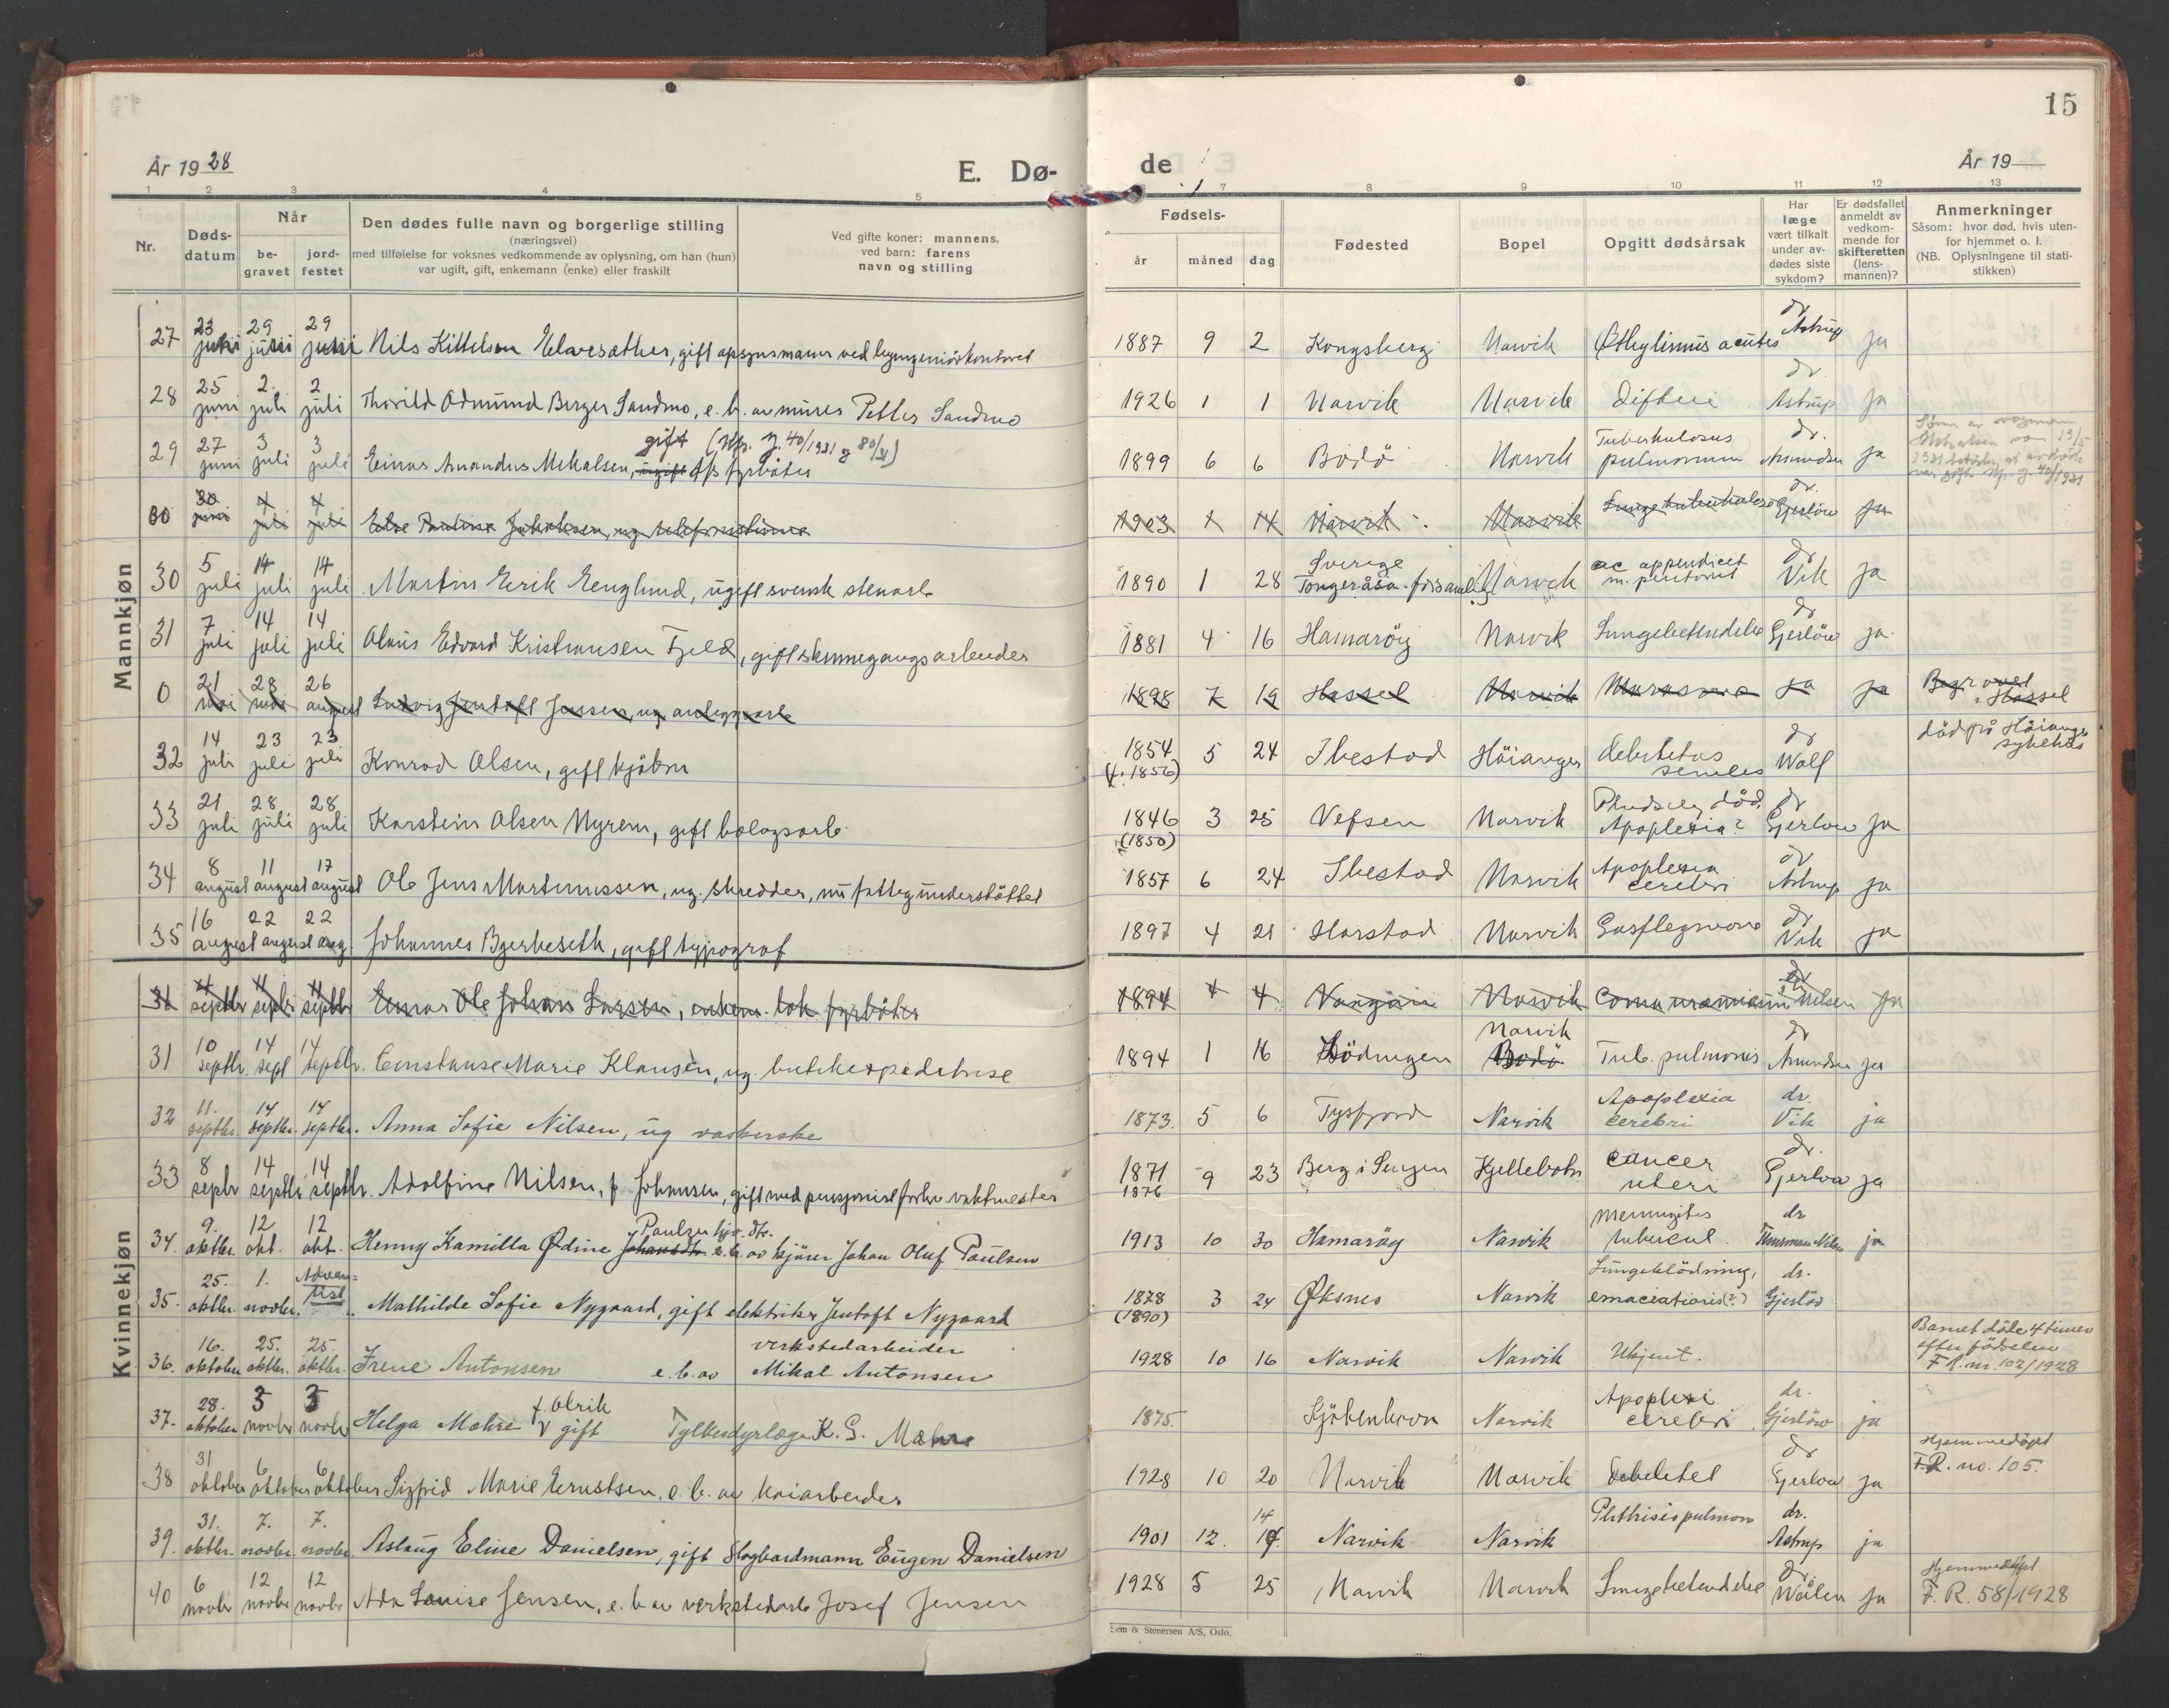 15
År 1928
E. Dø-
de
År 19
1 2 3 4 5 7 8 9 10 11 12 13
Nr.
Døds-
datum
Når
be-
gravet
jord-
festet
Den dødes fulle navn og borgerlige stilling
(næringsvei)
med tilføielse for voksnes vedkommende av oplysning, om han (hun)
var ugift, gift, enkemann (enke) eller fraskilt
Ved gifte koner: mannens,
ved barn: farens
navn og stilling
Fødsels-
år måned dag
Fødested
Bopel
Opgitt dødsårsak
Har
læge
vært tilkalt
under av-
dødes siste
sykdom?
Er dødsfallet
anmeldt av
vedkom-
mende for
skifteretten
(lens-
mannen)?
Anmerkninger
Såsom: hvor død, hvis uten-
for hjemmet o. l.
(NB. Oplysningene til stati-
stikken)
Mannkjøn
27 23 juni 29 juni 29 juni Nils Kittelsen, gift opsynsmann ved 1887 9 2 Kongsberg Narvik dr Astrup ja
28 25 juni 2. juli 2 juli Thorild Odmund Berger Sandmo, e. b. av murer Petter Sandmo 1926 1 1 Narvik Narvik Difteri dr Astrup ja
29 27 juni 3 juli 3 juli Einar Amandus Mikalsen, ugift gift (Kfr. J. 40/1931 & 80/31) fyrbøter 1899 6 6 Bodö Narvik Tuberkulosus pulmonum dr. Amundsen ja
30 30 juni 4 juli 4 juli Else Pauline Jakobsen, ug telefonistinne 1903 1 14 Narvik Narvik Lungetuberkulose dr. Gjerlöw ja
30 5 juli 14 juli 14 juli Martin Erik Englund, ugift svensk stenarb 1890 1 28 Sverige Narvik ac appendicit m. peritonit dr Vik ja
31 7 juli 14 juli 14 juli Olaus Edvard Kristiansen Fjeld, gift skinnegangsarbeider 1881 4 16 Hamaröy Narvik Lungebetendelse dr Gjerlöw ja
0 21 mai 28 mai 26 august Ludvig Jentoft Jensen, ug anleggsarb 1898 7 19 Hassel Narvik ja ja Begravet i Hassel
32 14 juli 23 juli 23 juli Konrad Olsen, gift kjøbm 1854 (f. 1856) 5 24 Ibestad Höianger debilitas seniles dr Wolf död på Höianger sykehus
33 21 juli 28 juli 28 juli Karstein Olsen Nyrem, gift bolagsarb. 1846 (1850) 3 25 Vefsen Narvik Pludselig död. Apoplexia? dr Gjerlow ja
34 8 august 11 august 17 august Ole Jens Martinussen, ug. skredder, nu fattigunderstöttet 1857 6 24 Ibestad Narvik Apoplexia cerebri dr Astrup ja
35 16 august 22 august 22 aug. Johannes Bjerkeseth, gift typograf 1897 4 21 Harstad Narvik Gasflegmone dr Vik ja
Kvinnekjøn
31 septbr septbr septbr Einar Ole Johan Larsen, enkem. lok fyrbøter 1894 4 4 Narvik Coma dr Nilsen ja
31 10 septbr. 14 sept 14 septbr. Constanse Marie Klausen, ug. butikexpeditrise 1894 1 16 Lödingen Bodö Narvik Tub. pulmonis dr Amundsen ja
32 11. septbr. 14 septbr. 14 septbr. Anna Sofie Nilsen, ug vaskerske 1873. 5 6 Tysfjord Narvik Apoplexia cerebri dr. Vik ja
33 8 septbr 14 septbr 14 septbr. Adolfine Nilsen, f. Johansen, gift med pensjonist forhv. vaktmester 1871 1876 9 23 Berg i Senjen Kjellebotn cancer uteri dr. Gjerlow ja
34. 9. oktbr. 12 okt. 12 okt. Henny Kamilla Ødine Johansdtr. Paulsen e. b. av kjører Johan Oluf Paulsen 1913 10 30 Hamaröy Narvik Meningitis tubercul. dr ja
35. 25. oktbr. 1. novbr. Adventist Mathilde Sofie Nygaard, gift elektriker Jentoft Nygaard 1878 (1890) 3 24 Øksnes Narvik Lungeblödning, emaciationis(?) dr. Gjerlöw
36. 16. oktober 25. oktbr. 25. oktbr. Irene Antonsen e. b. av verkstedarbeider Mikal Antonsen 1928 10 16 Narvik Narvik Ukjent. Barnet döde 4 timer efter födselen F. R. nr. 102/1928
37. 28. oktober 3 novbr 3 novbr Helga Mæhre f. Ulrik gift Fylkesdyrlæge K. G. Mæhre 1875 Kjöbenhavn Narvik Apoplexi cerebri dr. Gjerlöw ja
38 31 oktober 6 oktober 6 oktober Sigrid Marie Ernstsen, e. b. av kaiarbeider 1928 10 20 Narvik Narvik Debilitet dr Gjerlow ja Hjemmedöpt F. R. no. 105.
39. 31. oktbr. 7. novbr. 7. novbr. Aslaug Eline Danielsen, gift Slagbordmann Eugen Danielsen 1901 12. 14 Narvik Narvik Phthisis pulmon dr. Astrup ja
40 6 novbr 12 novbr 12 novbr Ada Louise Jensen, e. b. av verkstedarb Josef Jensen 1928 5 25 Narvik Narvik Lungebetendelse dr. Waalen ja Hjemmedöpt F. R. 58/1928
Lem & Stenersen A/S, Oslo.